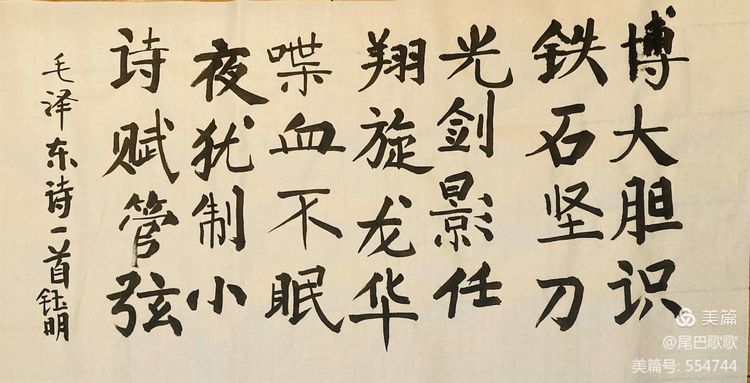 博大胆识
铁石坚刀
光剑影任
翔旋龙华
喋血不眠
夜犹制小
诗赋管弦
毛泽东诗一首钰明
美篇
@尾巴歌歌
美篇号: 554744